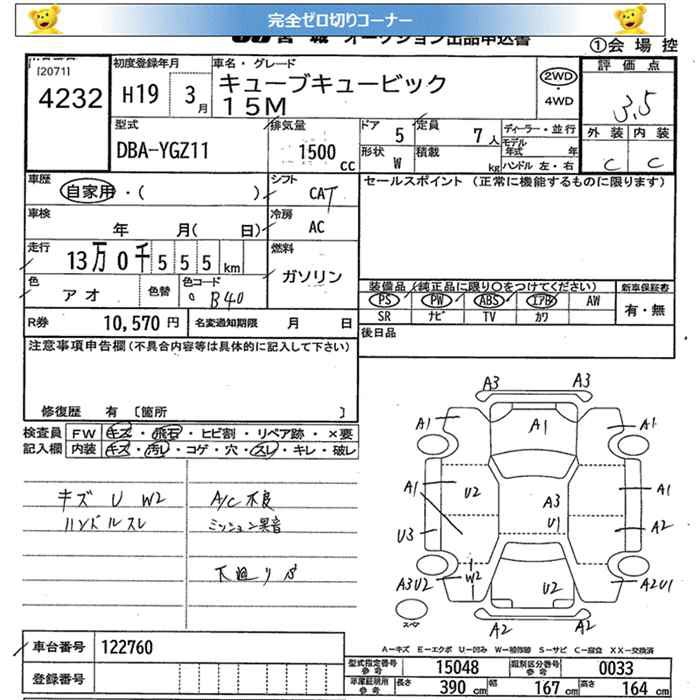 完全ゼロ切りコーナー
宮城 オークション出品申込書
①会場控
[2071]
4232
初度登録年月
H19 3月
車名・グレード
キューブキュービック
15M
2WD
・
4WD
評価点
3.5
外装 内装
C C
型式
DBA-YGZ11
排気量
1500 cc
ドア 5
定員 7人
形状 W
積載 kg
ディーラー・並行
モデル年式 年
ハンドル 左・右
車歴
自家用・( )
シフト
CAT
セールスポイント (正常に機能するものに限ります)
車検
年 月( 日)
冷房
AC
走行
13万0千555km
燃料
ガソリン
色
アオ
色替
色コード
B40
装備品 (純正品に限り○をつけてください)
新車保証書
PS PW ABS エアB AW
SR ナビ TV カワ
有・無
R券 10,570円
名変通知期限 月 日
後日品
注意事項申告欄(不具合内容等は具体的に記入して下さい)
修復歴 有 [箇所 ]
検査員 FW キズ・飛石・ヒビ割・リペア跡・×要
記入欄 内装 キズ・汚レ・コゲ・穴・スレ・キレ・破レ
キズ U W2
ハンドルスレ
A/C不良
ミッション異音
下廻りサ
A3 A3
A1 A1 A1
A1 U2 A3 A1
U1
U3 A2
A3U2 W2 U2 A2U1
スペア
A2 A2
A-キズ E-エクボ U-凹み W-補修跡 S-サビ C-腐食 XX-交換済
車台番号 122760
登録番号
型式指定番号 参考 15048
類別区分番号 参考 0033
車庫証明用 参考 長さ 390cm 幅 167cm 高さ 164cm